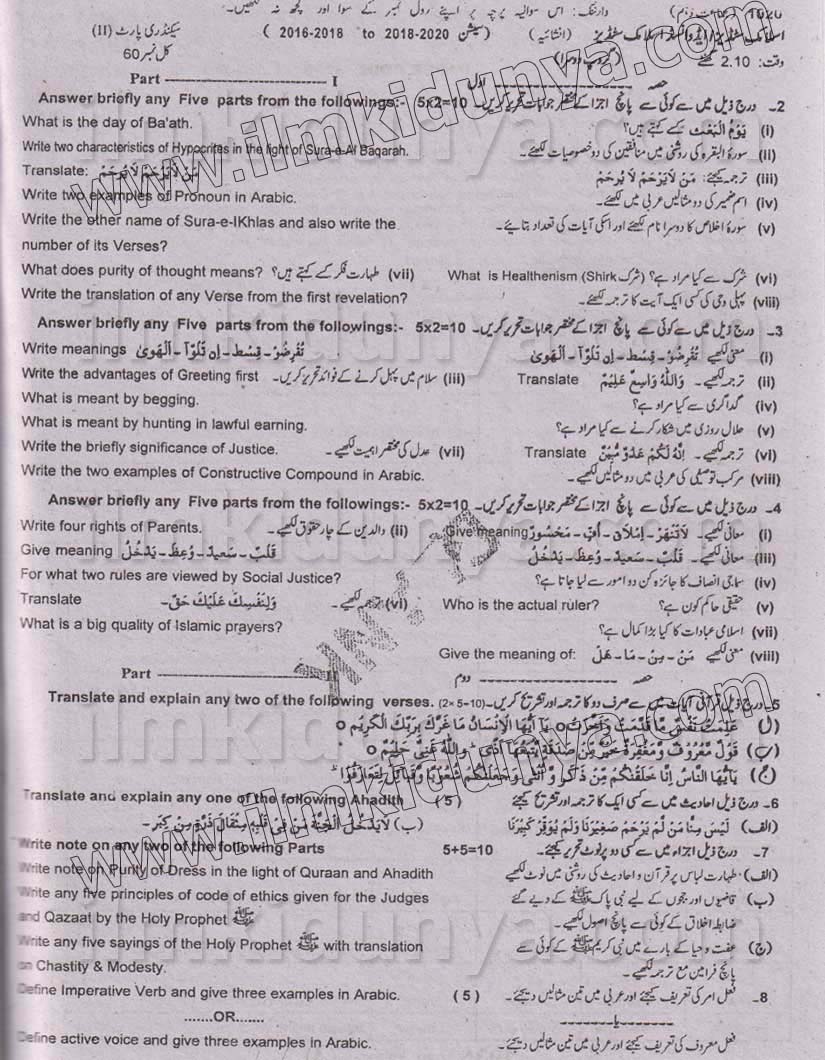 وارننگ: اس سوالیہ پرچہ پر اپنے رول نمبر کے سوا اور کچھ نہ لکھیں۔
(سیشن 2016-2018 to 2018-2020) سیکنڈری پارٹ (II)
وقت: 2.10 گھنٹے (گروپ دوسرا) کل نمبر 60
Part ------------------ I حصہ ------------------ اول
Answer briefly any Five parts from the followings:- 5x2=10 2۔ درج ذیل میں سے کوئی سے پانچ اجزا کے مختصر جوابات تحریر کریں۔
What is the day of Ba'ath. (i) یَوْمُ الْبَعْث کسے کہتے ہیں؟
Write two characteristics of Hypocrites in the light of Sura-e-Al Baqarah. (ii) سورۃ البقرہ کی روشنی میں منافقین کی دو خصوصیات لکھیئے۔
Translate: مَنْ لَا یَرْحَمْ لَا یُرْحَمْ (iii) ترجمہ کیجئے: مَنْ لَا یَرْحَمْ لَا یُرْحَمْ
Write two examples of Pronoun in Arabic. (iv) اسم ضمیر کی دو مثالیں عربی میں لکھیئے۔
Write the other name of Sura-e-IKhlas and also write the (v) سورۃ اخلاص کا دوسرا نام لکھیئے اور اسکی آیات کی تعداد بتائیے۔
number of its Verses?
What does purity of thought means? طہارت فکر کسے کہتے ہیں؟ (vii) What is Healthenism (Shirk شرک) شرک سے کیا مراد ہے؟ (vi)
Write the translation of any Verse from the first revelation? (viii) پہلی وحی کی کسی ایک آیت کا ترجمہ لکھئے۔
Answer briefly any Five parts from the followings:- 5x2=10 3۔ درج ذیل میں سے کوئی سے پانچ اجزا کے مختصر جوابات تحریر کریں۔
Write meanings تُقْرِضُوْ۔ قِسْط۔ اِنْ تَلْوٗا۔ اَلْھَوٰی (i) معنی لکھیے تُقْرِضُوْ۔ قِسْط۔ اِنْ تَلْوٗا۔ اَلْھَوٰی
Write the advantages of Greeting first سلام میں پہل کرنے کے فوائد تحریر کریں۔ (iii) Translate (ii) ترجمہ لکھیے۔ وَاللّٰهُ وَاسِعٌ عَلِیْمٌ
What is meant by begging. (iv) گداگری سے کیا مراد ہے؟
What is meant by hunting in lawful earning. (v) حلال روزی میں شکار کرنے سے کیا مراد ہے؟
Write the briefly significance of Justice. عدل کی مختصر اہمیت لکھیے۔ (vii) Translate (vi) ترجمہ لکھیے۔ اِنَّهٗ لَکُمْ عَدُوٌّ مُّبِیْنٌ
Write the two examples of Constructive Compound in Arabic. (viii) مرکب توصیفی کی عربی میں دو مثالیں لکھیں۔
Answer briefly any Five parts from the followings:- 5x2=10 4۔ درج ذیل میں سے کوئی سے پانچ اجزا کے مختصر جوابات تحریر کریں۔
Write four rights of Parents. والدین کے چار حقوق لکھیے۔ (ii) Give meaning (i) معانی لکھیے۔ لَاتَنْھَرْ۔ اِمْلَاق۔ اُفٍّ۔ مَحْسُوْر
Give meaning قَلْب۔ سَعِید۔ وُعِظَ۔ یَدْخُلُ (iii) معانی لکھیے۔ قَلْب۔ سَعِید۔ وُعِظَ۔ یَدْخُلُ
For what two rules are viewed by Social Justice? (iv) سماجی انصاف کا جائزہ کن دو امور سے لیا جاتا ہے؟
Translate وَلِنَفْسِكَ عَلَیْكَ حَقٌّ۔ ترجمہ لکھیے۔ (vi) Who is the actual ruler? (v) حقیقی حاکم کون ہے؟
What is a big quality of Islamic prayers? (vii) اسلامی عبادات کا کیا بڑا کمال ہے؟
Give the meaning of: (viii) معنی لکھیے مَنْ۔ مِنْ۔ مَا۔ ھَلْ
Part ------------------ II حصہ ------------------ دوم
Translate and explain any two of the following verses. (2x 5=10) 5۔ درج ذیل قرآنی آیات میں سے صرف دو کا ترجمہ اور تشریح کریں۔
(ا) عَلِمَتْ نَفْسٌ مَّا قَدَّمَتْ وَاَخَّرَتْ ○ یٰٓاَیُّھَا الْاِنْسَانُ مَا غَرَّكَ بِرَبِّكَ الْکَرِیْمِ ○
(ب) قَوْلٌ مَّعْرُوْفٌ وَّمَغْفِرَةٌ خَیْرٌ مِّنْ صَدَقَةٍ یَّتْبَعُھَا اَذًی وَاللّٰهُ غَنِیٌّ حَلِیْمٌ ○
(ج) یٰٓاَیُّھَا النَّاسُ اِنَّا خَلَقْنٰکُمْ مِّنْ ذَکَرٍ وَّاُنْثٰی وَجَعَلْنٰکُمْ شُعُوْبًا وَّقَبَآئِلَ لِتَعَارَفُوْا
Translate and explain any one of the following Ahadith (5) 6۔ درج ذیل احادیث میں سے کسی ایک کا ترجمہ اور تشریح کیجئے
(الف) لَیْسَ مِنَّا مَنْ لَّمْ یَرْحَمْ صَغِیْرَنَا وَلَمْ یُوَقِّرْ کَبِیْرَنَا (ب) لَا یَدْخُلُ الْجَنَّةَ مَنْ فِیْ قَلْبِهٖ مِثْقَالُ ذَرَّةٍ مِنْ کِبَرٍ۔
Write note on any two of the following Parts 5+5=10 7۔ درج ذیل اجزاء میں سے کسی دو پر نوٹ تحریر کیجئے۔
Write note on Purity of Dress in the light of Quraan and Ahadith (الف) طہارت لباس پر قرآن و احادیث کی روشنی میں نوٹ لکھیئے
Write any five principles of code of ethics given for the Judges (ب) قاضیوں اور ججوں کے لیے نبی پاک ﷺ کے دیے گئے
and Qazaat by the Holy Prophet ﷺ ضابطہ اخلاق کے کوئی سے پانچ اصول لکھیے۔
Write any five sayings of the Holy Prophet ﷺ with translation (ج) عفت و حیا کے بارے میں نبی کریم ﷺ کے کوئی سے
on Chastity & Modesty. پانچ فرامین مع ترجمہ لکھیے۔
Define Imperative Verb and give three examples in Arabic. (5) 8۔ فعل امر کی تعریف کیجئے اور عربی میں تین مثالیں دیجئے۔
........OR....... ------یا------
Define active voice and give three examples in Arabic. فعل معروف کی تعریف کیجئے اور عربی میں تین مثالیں دیجئے۔
www.ilmkidunya.com
ilmkidunya.com